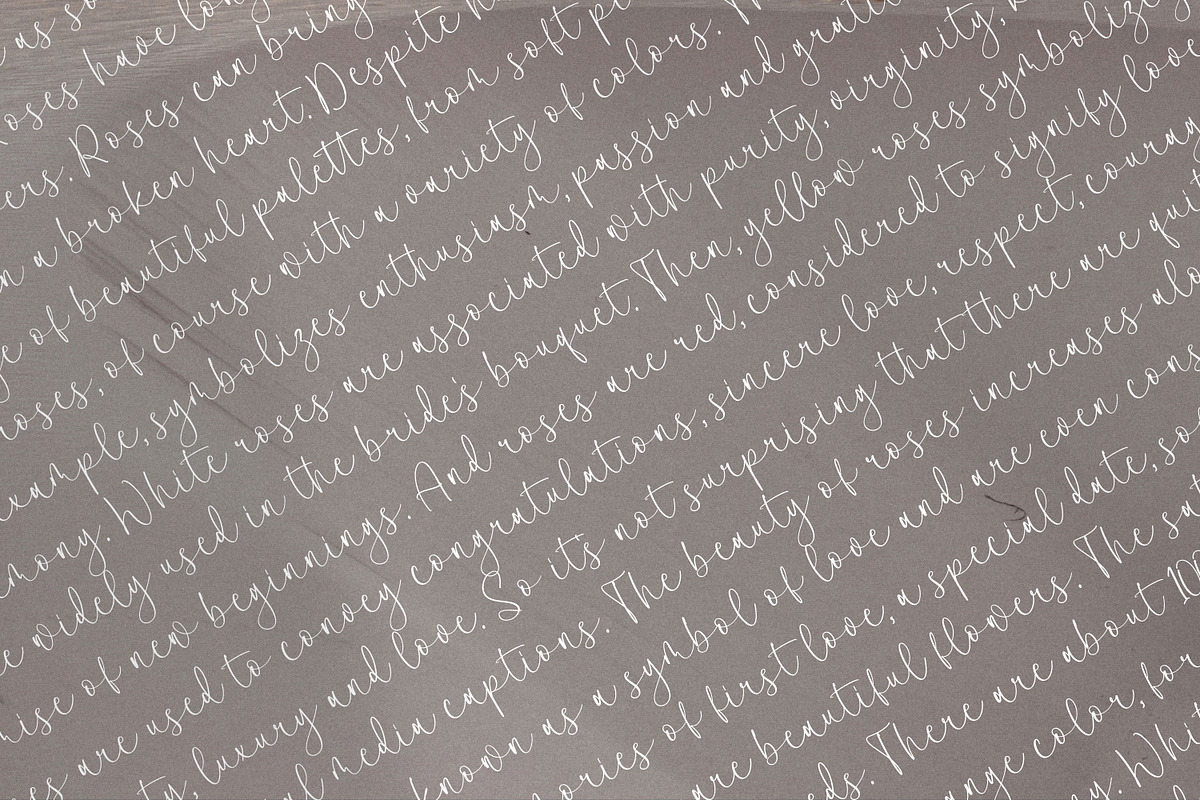 as so
Roses have long
ers. Roses can bring
n a broken heart. Despite
ge of beautiful palettes, from soft
roses, of course with a variety of colors.
example, symbolizes enthusiasm, passion and gratit
mony. White roses are associated with purity, virginity,
e widely used in the bride's bouquet. Then, yellow roses symbolize
mise of new beginnings. And roses are red, considered to signify love
es are used to convey congratulations, sincere love, respect, courag
ty, luxury and love. So it's not surprising that there are quit
al media captions. The beauty of roses increases alo
known as a symbol of love and are even cons
ories of first love, a special date, so
are beautiful flowers. The sa
eds. There are about 10
ange color, for
y. Whit